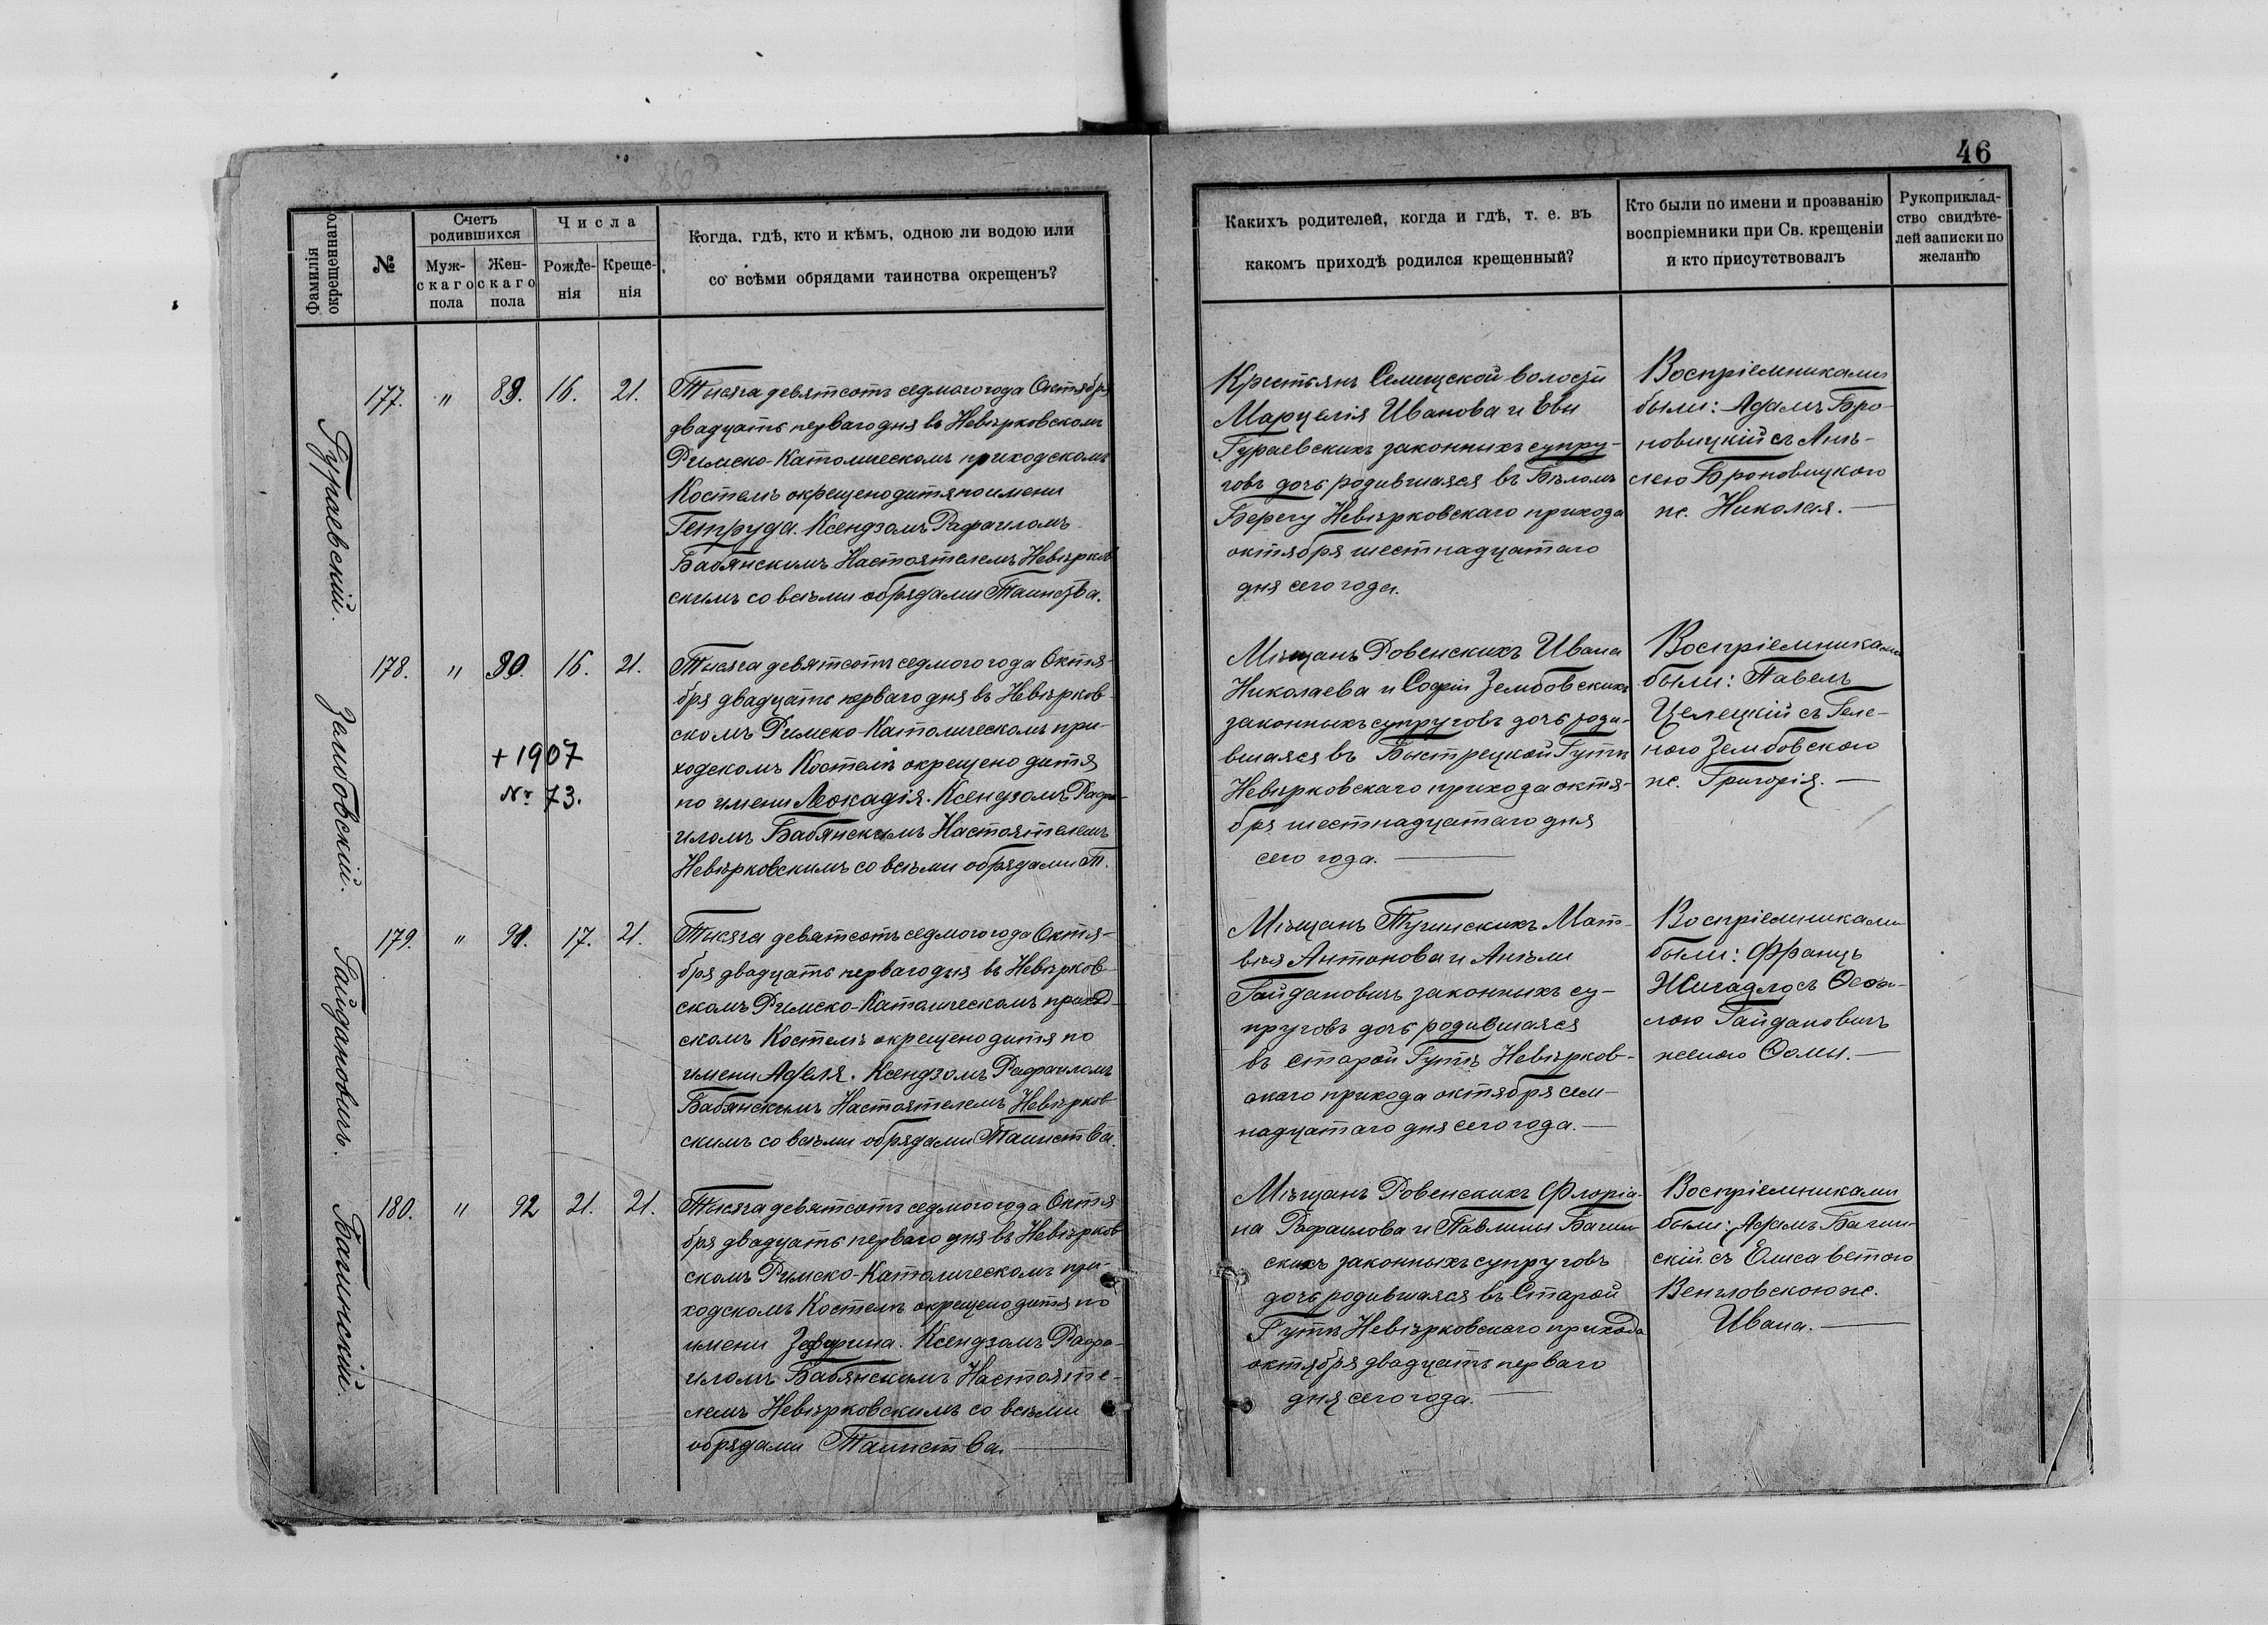 46
Фамилія
окрещеннаго
№
Счетъ
родившихся
Муж-
скаго
пола
Жен-
скаго
пола
Числа
Рожде-
нія
Креще-
нія
Когда, гдѣ, кто и кѣмъ, одною ли водою или
со всѣми обрядами таинства окрещенъ?
Какихъ родителей, когда и гдѣ, т. е. въ
какомъ приходѣ родился крещенный?
Кто были по имени и прозванію
воспріемники при Св. крещеніи
и кто присутствовалъ
Рукоприклад-
ство свидѣте-
лей записки по
желанію
Гураевскій.
177. " 89. 16. 21.
Тысяча девятсотъ седмого года Октября
двадцать перваго дня въ Невѣрковскомъ
Римско-Католическомъ приходскомъ
Костелѣ окрещено дитя по имени
Гетруда. Ксендзомъ Рафаиломъ
Бабянскимъ Настоятелемъ Невѣрков
скимъ со всѣми обрядами Таинства.
Крестьянъ Селищской волости
Марцелія Иванова и Евы
Гураевскихъ законныхъ супру-
говъ дочь родившаяся въ Бѣломъ
Берегу Невѣрковскаго прихода
октября шестнадцатаго
дня сего года.
Воспріемниками
были: Адамъ Бро-
новицкій съ Анѣ-
лею Броновицкого
ж. Николая. —
Зембовскій.
178. " 90. 16. 21.
+ 1907
Nr 73.
Тысяча девятсотъ седмого года Октя-
бря двадцать перваго дня въ Невѣрков-
скомъ Римско-Католическомъ при-
ходскомъ Костелѣ окрещено дитя
по имени Леокадія. Ксендзомъ Рафа-
иломъ Бабянскимъ Настоятелемъ
Невѣрковскимъ со всѣми обрядами Т.
Мѣщанъ Ровенскихъ Ивана
Николаева и Софіи Зембовскихъ
законныхъ супруговъ дочь роди-
вшаяся въ Быстрецкой Гутѣ
Невѣрковскаго прихода октя-
бря шестнадцатаго дня
сего года. —
Воспріемниками
были: Павелъ
Целецкій съ Геле-
ною Зембовскою
ж. Григорія. —
Гайдановичъ.
179. " 91. 17. 21.
Тысяча девятсотъ седмого года Октя-
бря двадцать перваго дня въ Невѣрков-
скомъ Римско-Католическомъ приход-
скомъ Костелѣ окрещено дитя по
имени Аделя. Ксендзомъ Рафаиломъ
Бабянскимъ Настоятелемъ Невѣрков
скимъ со всѣми обрядами Таинства.
Мѣщанъ Тучинскихъ Мат-
вѣя Антонова и Анѣли
Гайдановичъ законныхъ су-
пруговъ дочь родившаяся
въ Старой Гутѣ Невѣрков-
скаго прихода октября сем-
надцатаго дня сего года. —
Воспріемниками
были: Францъ
Жигадло съ
лою Гайдановичъ
женою Ѳомы. —
Багинскій.
180. " 92 21. 21.
Тысяча девятсотъ седмого года Октя
бря двадцать перваго дня въ Невѣрков
скомъ Римско-Католическомъ при-
ходскомъ Костелѣ окрещено дитя по
имени Зефирина. Ксендзомъ Рафа-
иломъ Бабянскимъ Настояте-
лемъ Невѣрковскимъ со всѣми
обрядами Таинства. —
Мѣщанъ Ровенскихъ Флоріа-
на Рафаилова и Павлины Багин-
скихъ законныхъ супруговъ
дочь родившаяся въ Старой
Гутѣ Невѣрковскаго прихода
октября двадцать перваго
дня сего года. —
Воспріемниками
были: Адамъ Багин-
скій съ Елисаветою
Венгловскою ж.
Ивана. —